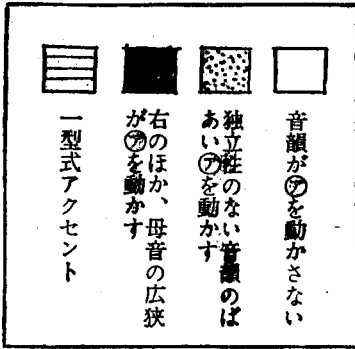 音韻が㋐を動かさない
独立性のない音韻のば
あい㋐を動かす
右のほか、母音の広狭
が㋐を動かす
一型式アクセント